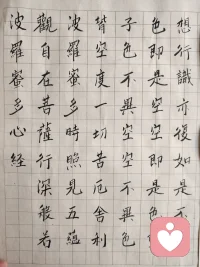 波羅蜜多心經
觀自在菩薩行深般若
波羅蜜多時照見五蘊
皆空度一切苦厄舍利
子色不異空空不異色
色即是空空即是色
想行識亦復如是不